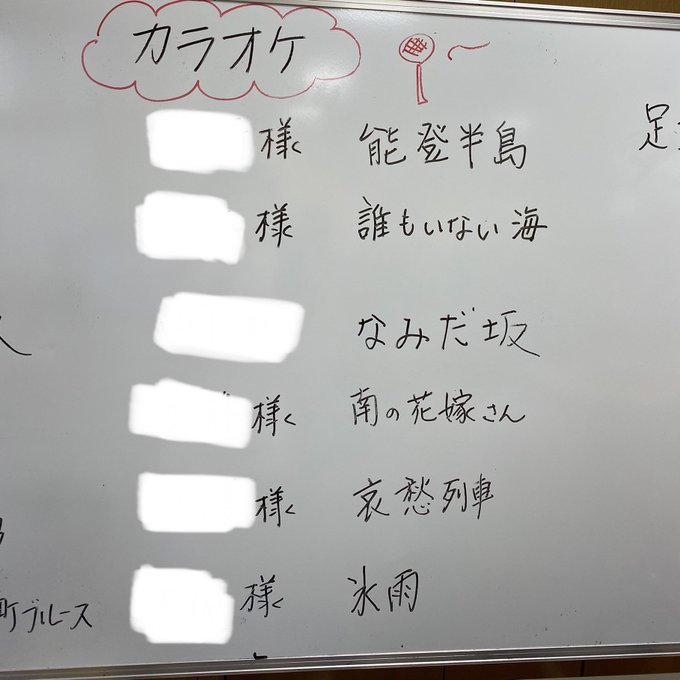 カラオケ
様 能登半島
様 誰もいない海
なみだ坂
様 南の花嫁さん
様 哀愁列車
様 氷雨
足
町ブルース